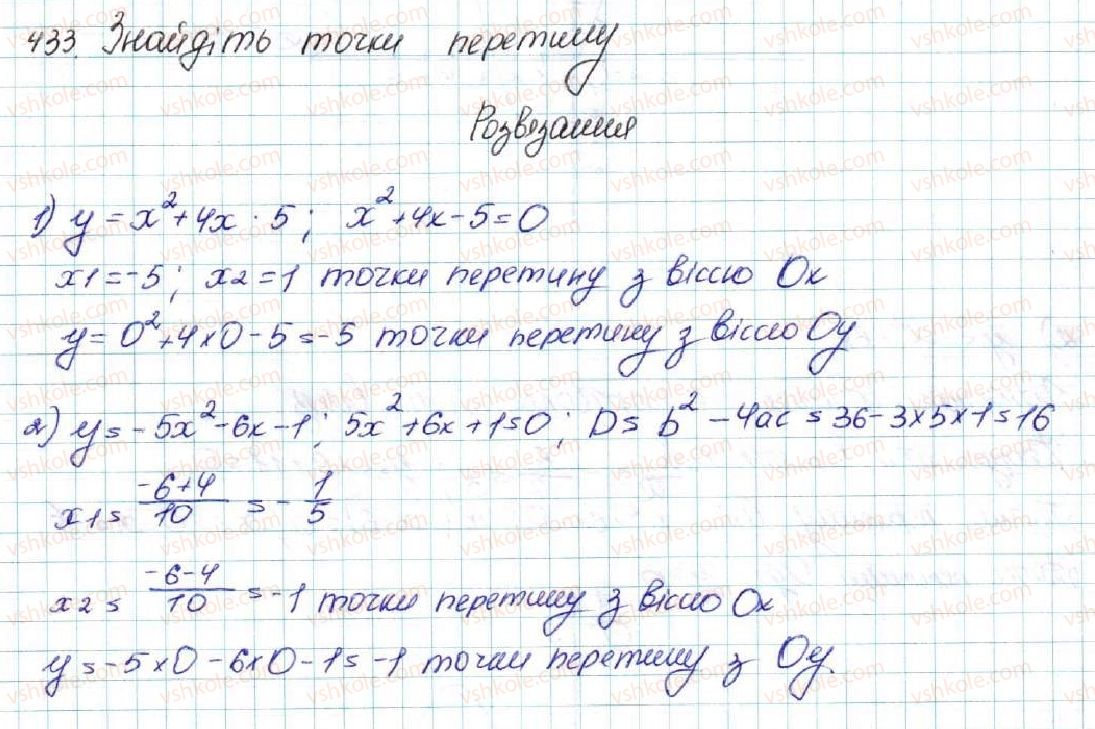 433. Знайдіть точки перетину
Розвязання
1) y = x²+4x · 5; x²+4x-5=0
x1=-5; x2=1 точки перетину з віссю Ox
y=0²+4×0-5=-5 точки перетину з віссю Oy
2) y= -5x²-6x-1; 5x²+6x+1=0; D= b²-4ac = 36-3×5×1=16
x1= -6+4/10 = -1/5
x2= -6-4/10 =-1 точки перетину з віссю Ox
y=-5×0-6×0-1=-1 точки перетину з Oy.